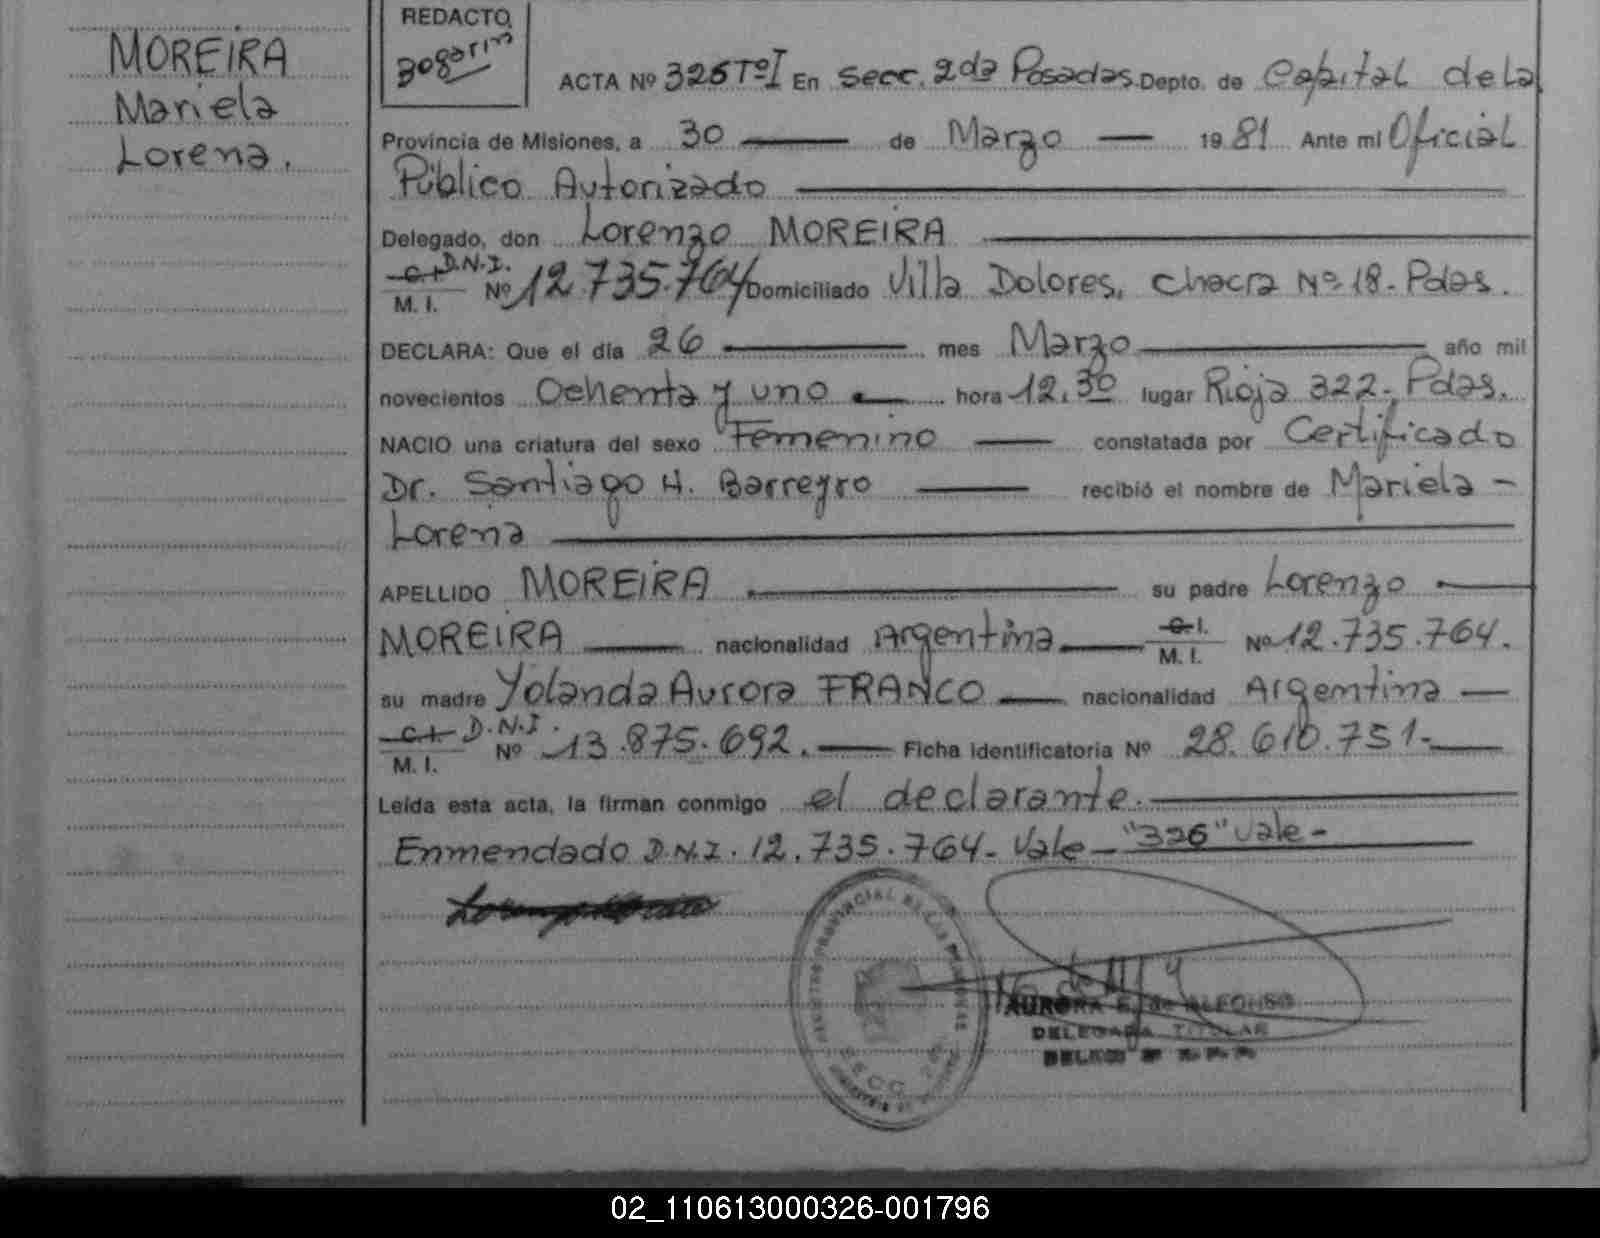 MOREIRA
Mariela
Lorena.
REDACTO
Bogarin
ACTA Nº 326 Tº I En Secc. 2da Posadas. Depto. de Capital de la
Provincia de Misiones, a 30 — de Marzo — 1981 Ante mi Oficial
Público Autorizado —
Delegado, don Lorenzo MOREIRA —
C.I. D.N.I.
M. I. Nº 12.735.764 Domiciliado Villa Dolores, Chacra Nº 18.- Pdas.
DECLARA: Que el día 26 — mes Marzo — año mil
novecientos Ochenta y uno — hora 12.30 lugar Rioja 322.- Pdas.
NACIO una criatura del sexo Femenino — constatada por Certificado
Dr. Santiago H. Barreyro — recibió el nombre de Mariela -
Lorena —
APELLIDO MOREIRA — su padre Lorenzo —
MOREIRA — nacionalidad Argentina — C.I.
M. I. Nº 12.735.764.
su madre Yolanda Aurora FRANCO — nacionalidad Argentina —
C.I. D.N.I.
M. I. Nº 13.875.692. — Ficha Identificatoria Nº 28.610.751.-
Leída esta acta, la firman conmigo el declarante. —
Enmendado D.N.I. 12.735.764- Vale - "326" Vale -
AURORA E. de ALFONSO
DELEGADA TITULAR
SECC. 2da
02_110613000326-001796